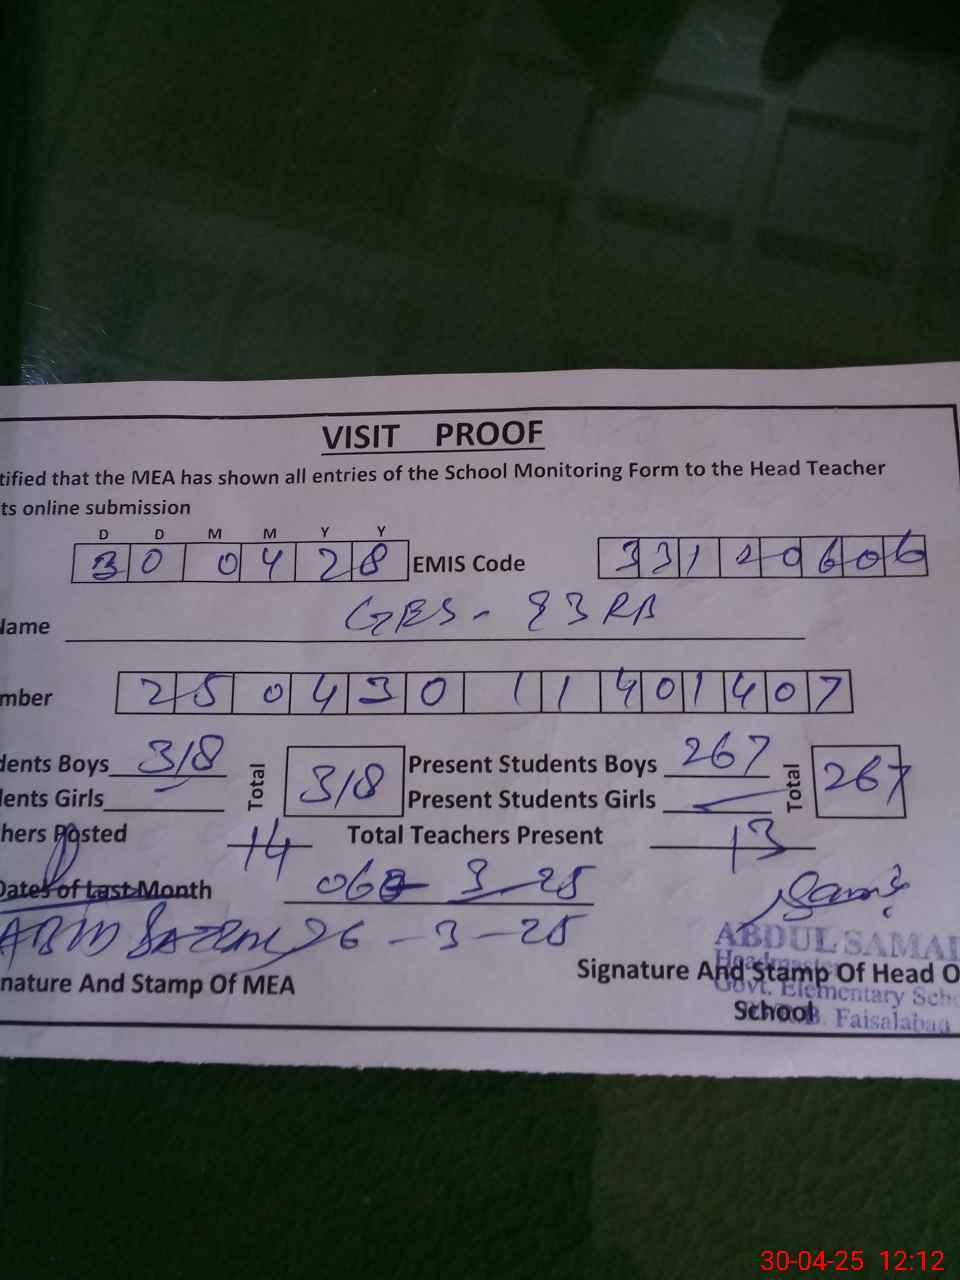 VISIT PROOF
tified that the MEA has shown all entries of the School Monitoring Form to the Head Teacher
ts online submission
D D M M Y Y
30 04 28 EMIS Code 33120606
Name GES - 83 RB
mber 250430 11401407
dents Boys 318 Total 318 Present Students Boys 267 Total 267
dents Girls Present Students Girls
hers Posted 14 Total Teachers Present 13
Dates of Last Month 06 3-25
ABID 26-3-25
ABDUL SAMAD
Headmaster
nature And Stamp Of MEA Signature And Stamp Of Head O
Govt. Elementary Scho
School
B. Faisalabad
30-04-25 12:12